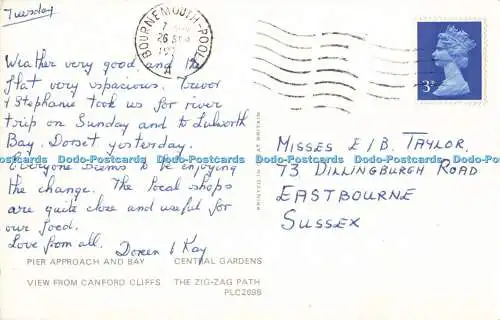 Tuesday
Weather very good and the
flat very spacious. Trevor
& Stephanie took us for river
trip on Sunday and to Lulworth
Bay, Dorset yesterday.
Everyone seems to be enjoying
the change. The local shops
are quite close and useful for
our food.
Love from all.
Doreen & Kay
BOURNEMOUTH-POOLE
26 SEP
A
3P
MISSES E/B. TAYLOR,
73 DILLINGBURGH ROAD
EASTBOURNE
SUSSEX
PRINTED IN GREAT BRITAIN
Dodo-Postcards Dodo-Postcards Dodo-Postcards Dodo-Postcards Dodo-Postcards
PIER APPROACH AND BAY CENTRAL GARDENS
VIEW FROM CANFORD CLIFFS THE ZIG-ZAG PATH
PLC2699